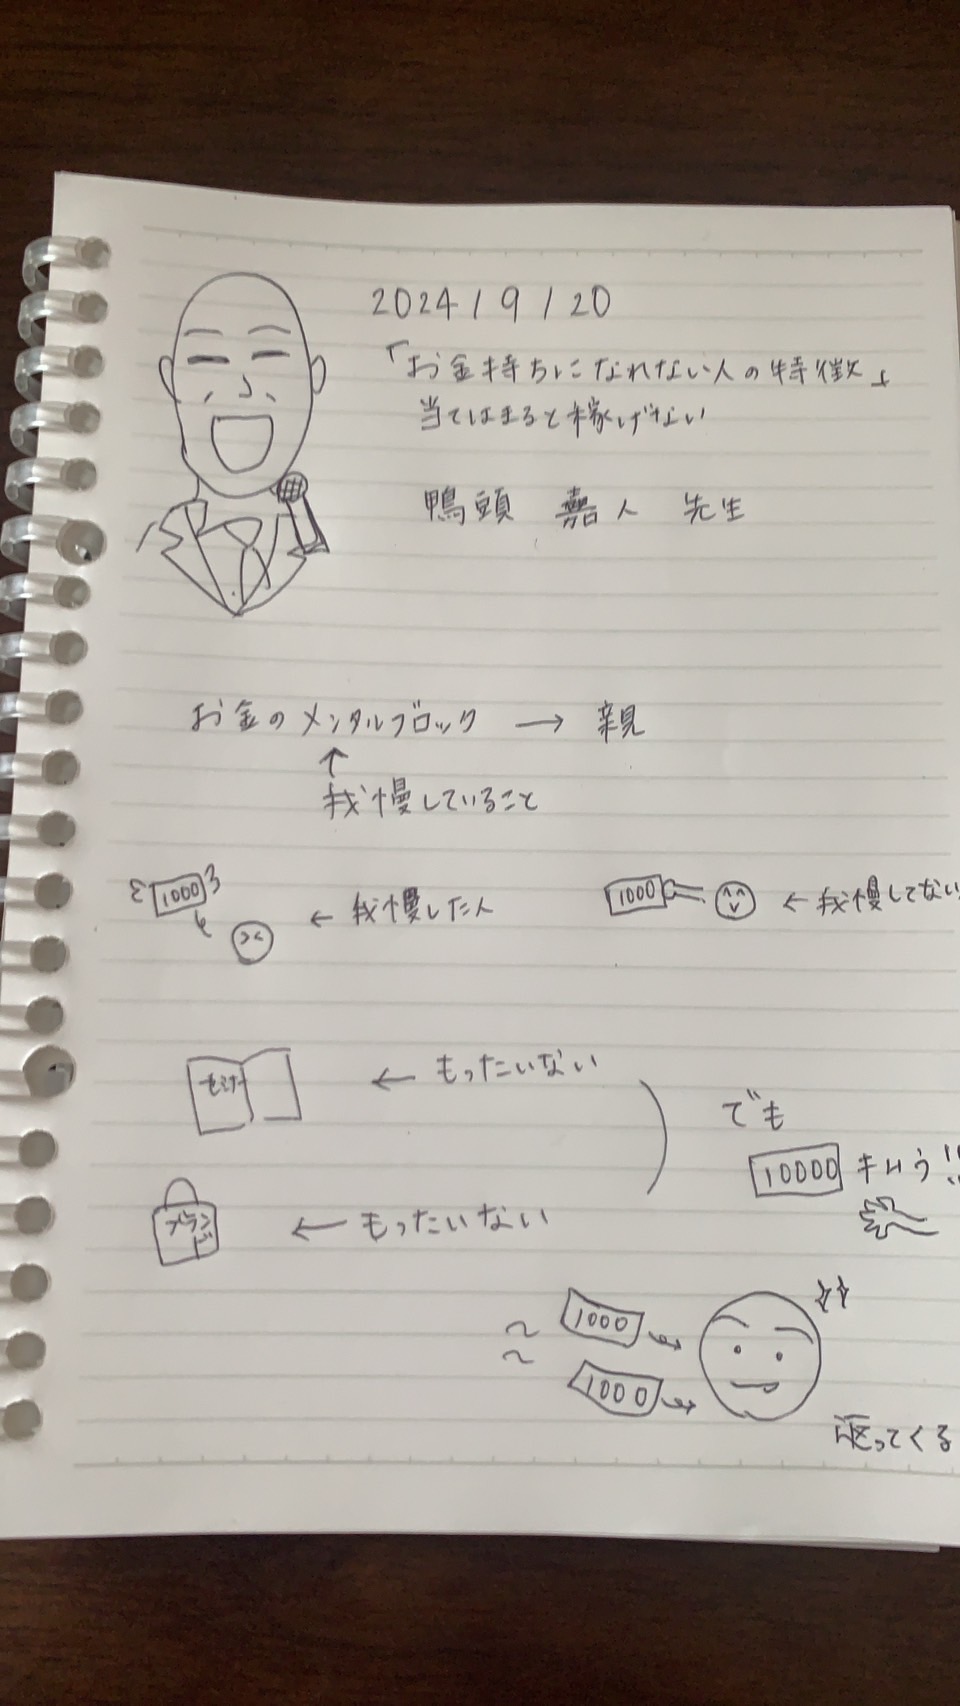 2024/9/20
「お金持ちになれない人の特徴」
当てはまると稼げない
鴨頭 嘉人 先生
お金のメンタルブロック → 親
↑
我慢していること
1000 ← 我慢した人
1000 ← 我慢してない
セミナー ← もったいない
でも
10000 キロう!!
ブランド ← もったいない
1000
1000
返ってくる